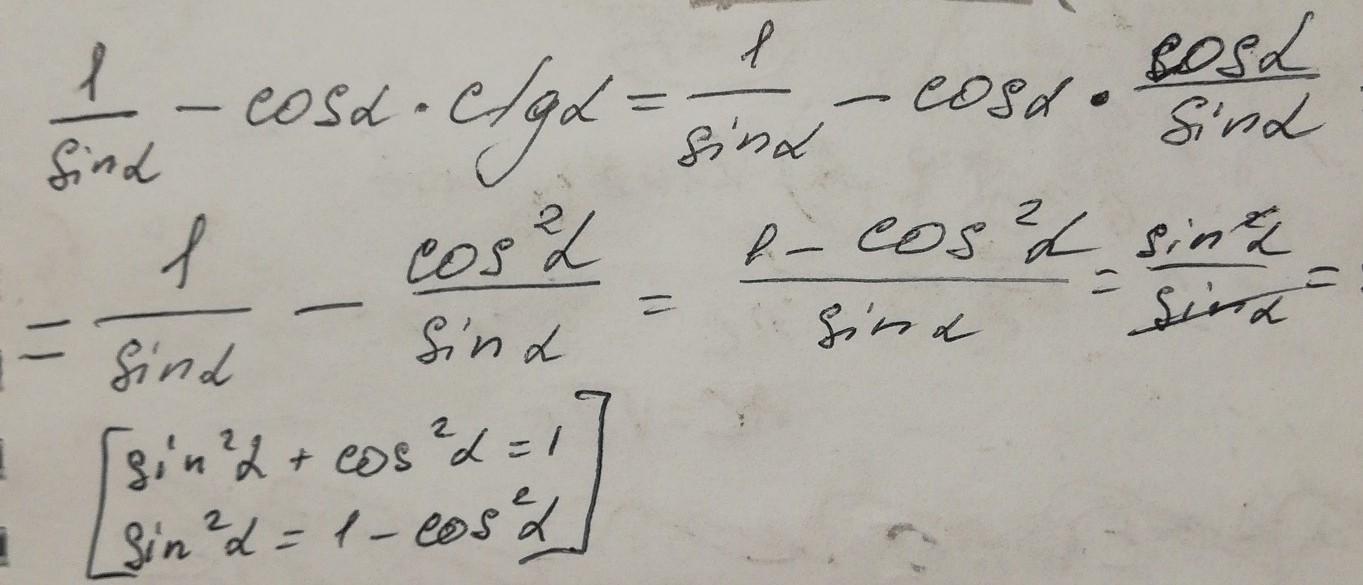 1/sinα − cosα · ctgα = 1/sinα − cosα · cosα/sinα
= 1/sinα − cos²α/sinα = 1 − cos²α/sinα = sin²α/sinα =
[sin²α + cos²α = 1
sin²α = 1 − cos²α]